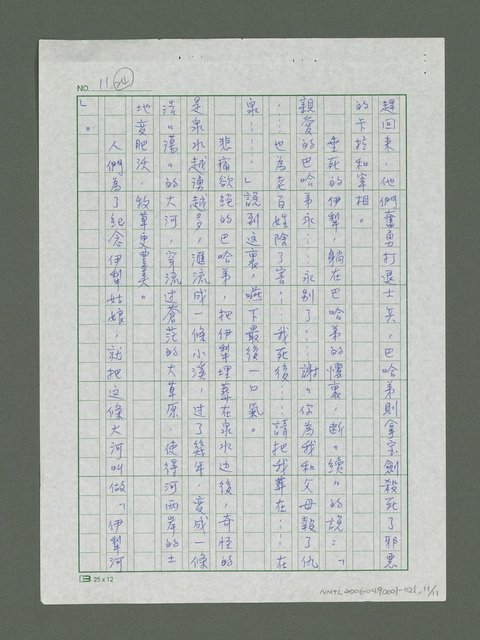 NO. 11. 64
趕回來，他們奮勇打退士兵，巴哈弟則拿宝劍殺死了邪惡
的卡拉和宰相。
垂死的伊犁，躺在巴哈弟的懷裏，斷〃續〃的說：「
親愛的巴哈弟永……永別了……謝〃你為我和父母報了仇
也為老百姓除了害……我死後……請把我葬在……在
泉……」說到这裏，嚥下最後一口氣。
悲痛欲絕的巴哈弟，把伊犁埋葬在泉水边後，奇怪的
是泉水越湧越多，滙流成一條小溪，过了幾年，变成一條
浩〃蕩〃的大河，穿流过蒼茫的大草原，使得河两岸的土
地变肥沃，牧草更豐美。
人們為了紀念伊犁姑娘，就把这條大河叫做「伊犁河
」。
25 x 12
NMTL20060490001-021, 11/11